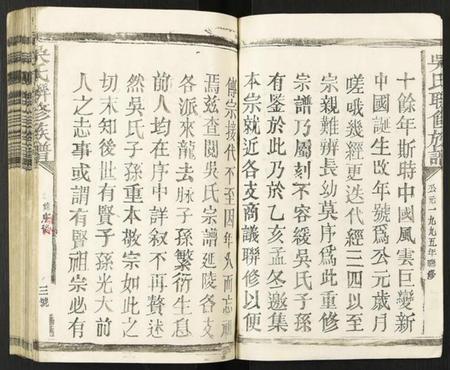 吳氏聯修族譜
公元一九九五年聯修
十餘年斯時中國風雲巨變新
中國誕生改年號爲公元歲月
嗟哦幾經更迭代經三四以至
宗親難辨長幼莫序爲此重修
宗譜乃屬刻不容緩吳氏子孫
有鉴於此乃於乙亥孟冬邀集
本宗就近各支商議聯修以便
傳宗接代不至因年久而忘源
焉兹查閲吳氏宗譜延陵各支
各派來龍去脉子孫繁衍生息
前人均在序中詳叙不再贅述
然吳氏子孫重本敬宗如此之
切未知後世有賢子孫光大前
人之志事或謂有賢祖宗必有
吳氏聯修族譜
三號